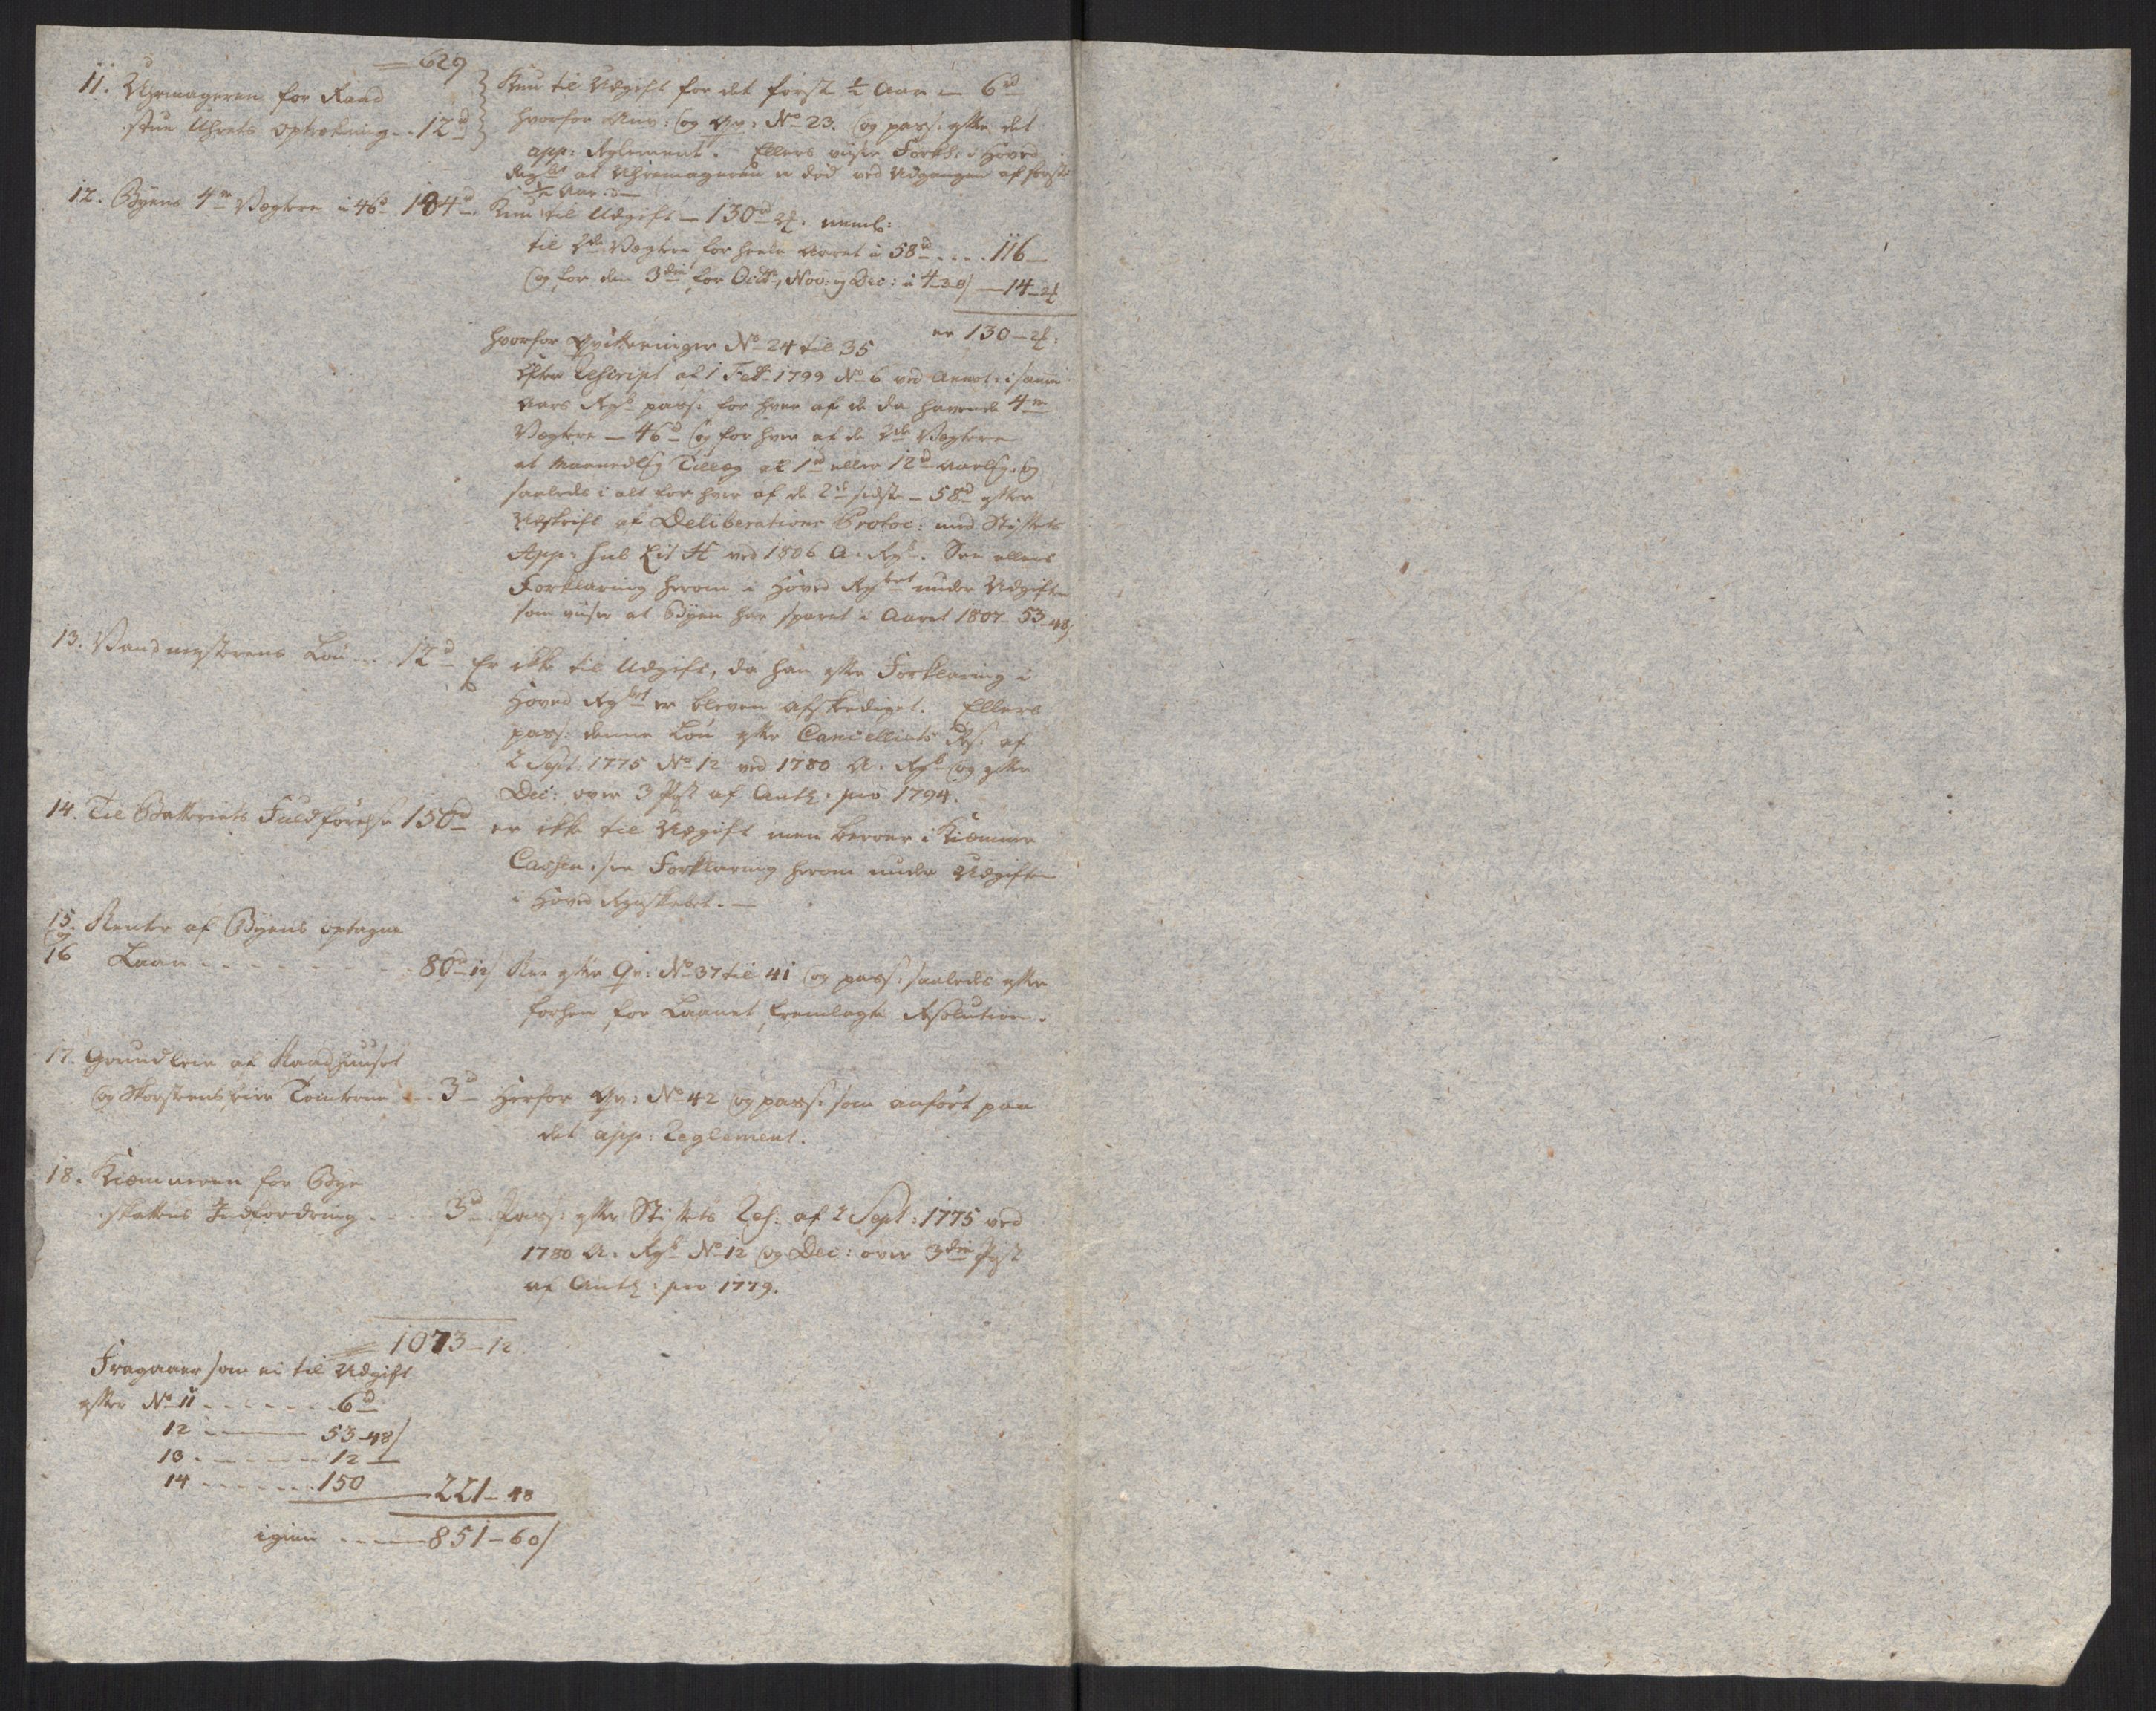 629
11. Uhrmageren for Raad
stue Uhrets optrækning .. 12d
Kun til Udgift for det første ½ Aar — 6d
hvorfor Anv: og Qv: No 23. og pass: efter det
app: Reglement. Ellers viiser Forkl: i Hoved
Regsbt at Uhrmageren er död ved Udgangen af første
½ Aar.
12. Byens 4re Vægtere a 46d 184d
Kun til Udgift — 130d 24. neml:
til 2de Vægtere for heele Aaret a 58d .... 116 —
og for den 3die for Octbr, Nov: og Dec: a 4-3-8 — 14-24
er 130-24:
hvorfor Qvitteringer No 24 til 35
Efter Rescript af 1 Febr 1799 No 6 ved Annot: i samme
Aars Rgsk pass: for hver af de da havende 4re
Vægtere — 46d og for hver af de 2de Vægtere
et maanedlig Tillæg af 1d eller 12d aarlig, og
saaledes i alt for hver af de 2de sidste — 58d efter
Udskrift af Deliberations Protoc: med Stiftets
App: sub Lit H ved 1806 A: Rgsk. See ellers
Forklaring herom i Hoved Rgsbet under Udgiften
som viiser at Byen har sparet i Aaret 1807 53-48
13. Vandmesterens Lön ... 12d
Er ikke til Udgift, da han efter Forklaring i
Hoved Rgsbt er bleven afskediget. Ellers
pass: denne Lön efter Cancelliets Res: af
2 Sept: 1775 No 12 ved 1780 A. Rgsk og efter
Dec: over 3 Post af Antg: pro 1794.
14. Til Batteriets Fuldförelse 150d
er ikke til Udgift men beroer i Kiæmner
Cassen, see Forklaring herom under Udgiften
i Hoved Regnskabet. —
15. Renter af Byens optagne
og
16 Laan . . . . . . . 80d 12
Er efter Qv: No 37 til 41 og pass: saaledes efter
forhen for Laanet fremlagte Resolution.
17. Grundleie af Raadhuuset
og Skorsteensfeier Tomterne .. 3d
Herfor Qv: No 42 og pass: som anfört paa
det app: Reglement.
18. Kiæmneren for Bye
skattens Indfordring . . . 5d
Pass: efter Stiftets Res: af 2 Sept: 1775 ved
1780 A. Rgsk No 12 og Dec: over 3die Post
af Antg: pro 1779.
1073-12
Fragaaer som ei til Udgift
efter No 11 . . . . . . 6d
12 . — 53-48
13 . . . . . 12 —
14 . . . . . 150 — 221-48
igien . . . — 851-60